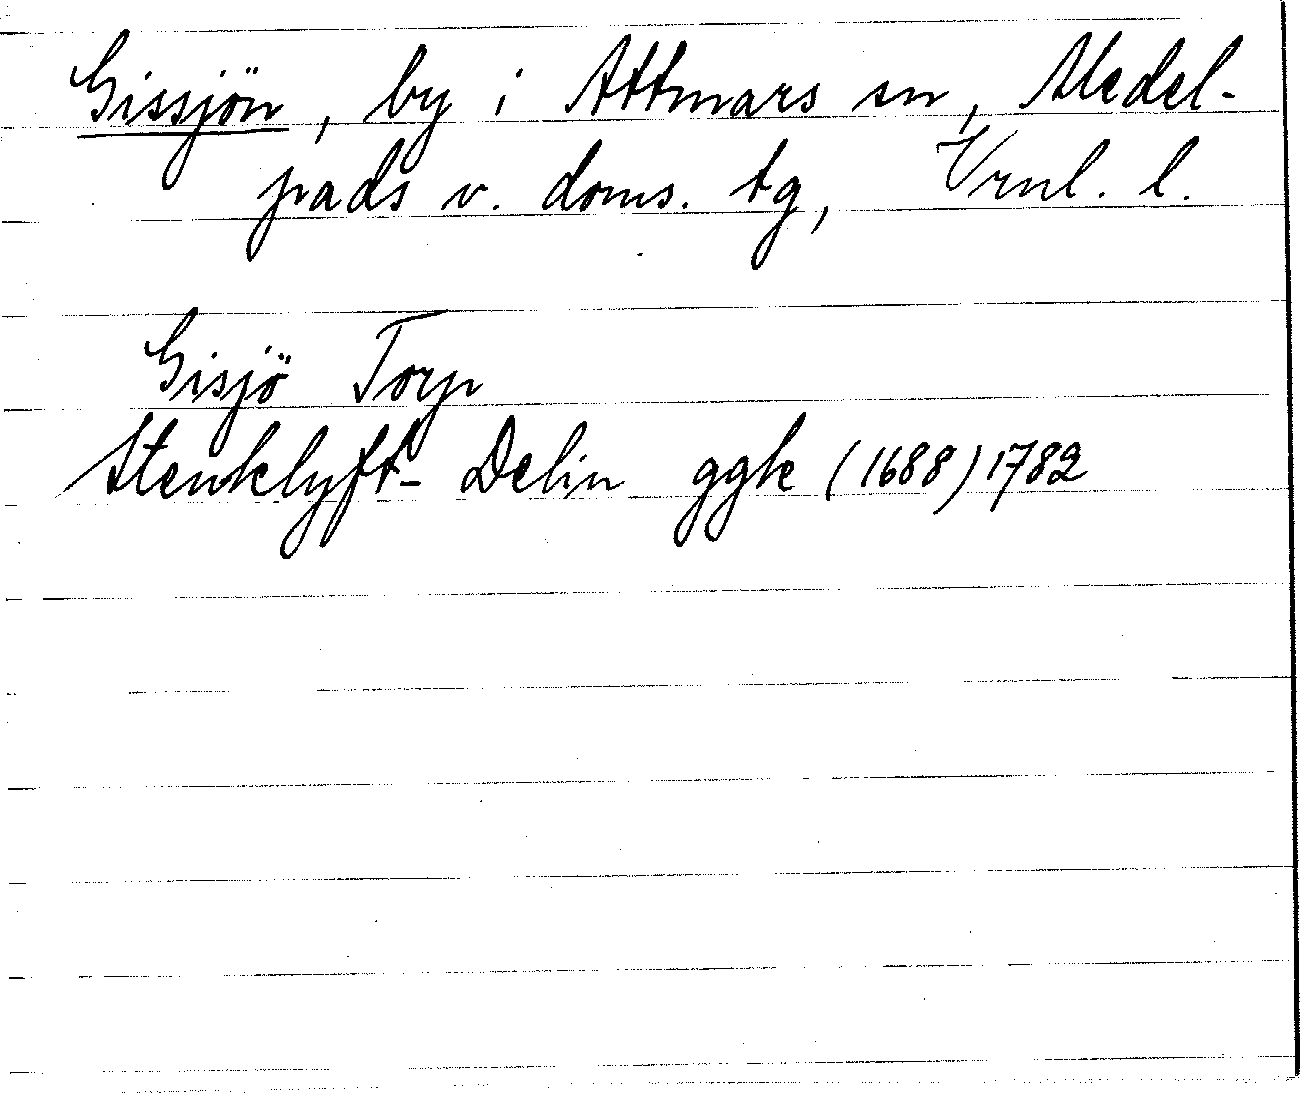 Gissjön, by i Attmars sn, Medel-
pads v. doms. tg, Vrnl. l.
Gisjö Torp
Stenklyft- Delin ggk (1688) 1782